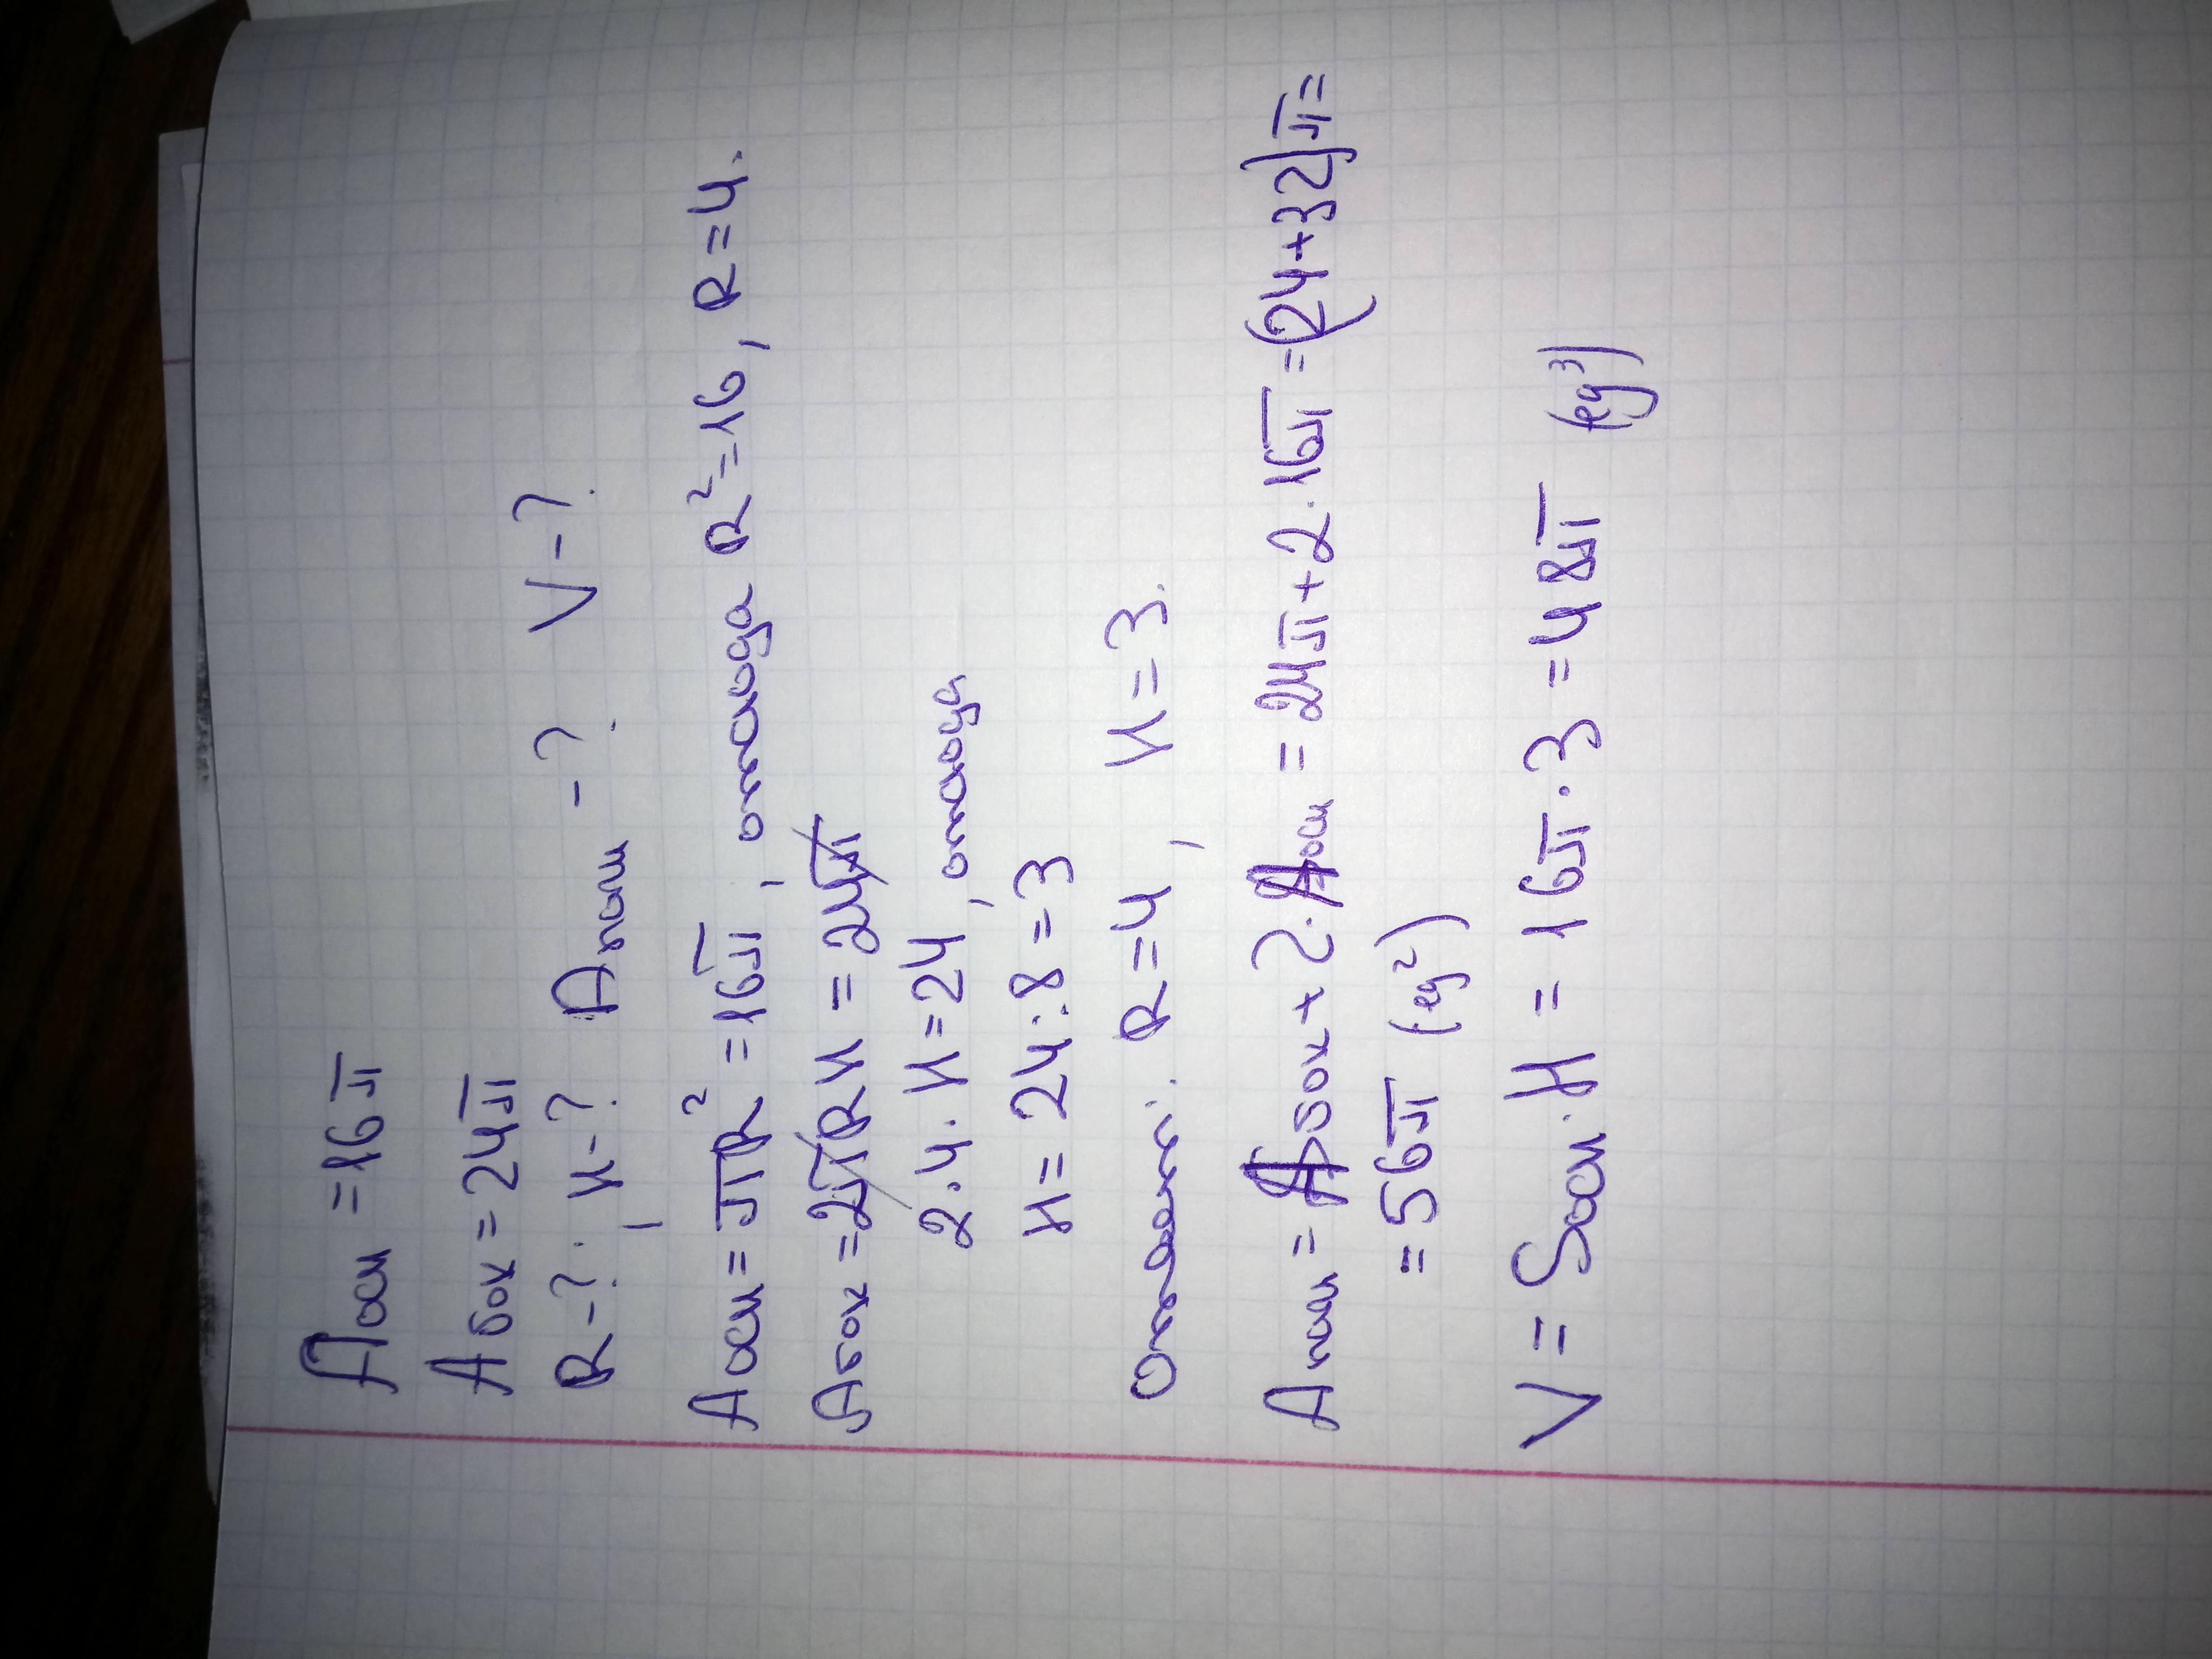 Aосн = 16π
Aбок = 24π
R-?, H-? Aполн -? V-?
Aосн = πR² = 16π, отсюда R² = 16, R = 4.
Aбок = 2πRH = 24π
2·4·H = 24, отсюда
H = 24:8 = 3
R = 4, H = 3.
Aполн = Aбок + 2·Aосн = 24π + 2·16π = (24+32)π =
= 56π (ед²)
V = Sосн·H = 16π·3 = 48π (ед³)